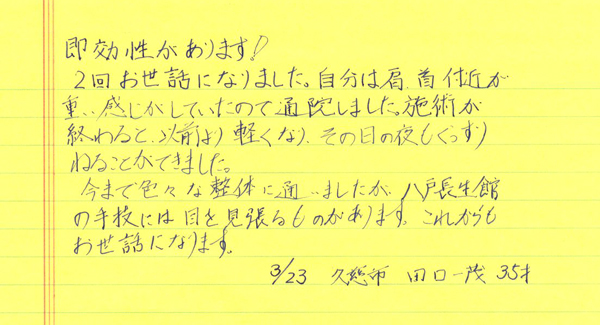 即効性があります!
2回お世話になりました。自分は肩、首付近が
重い感じがしていたので通院しました。施術が
終わると、以前より軽くなり、その日の夜もぐっすり
ねることができました。
今まで色々な整体に通いましたが、八戸長生館
の手技には目を見張るものがあります。これからも
お世話になります。
3/23 久慈市 田口一茂 35才